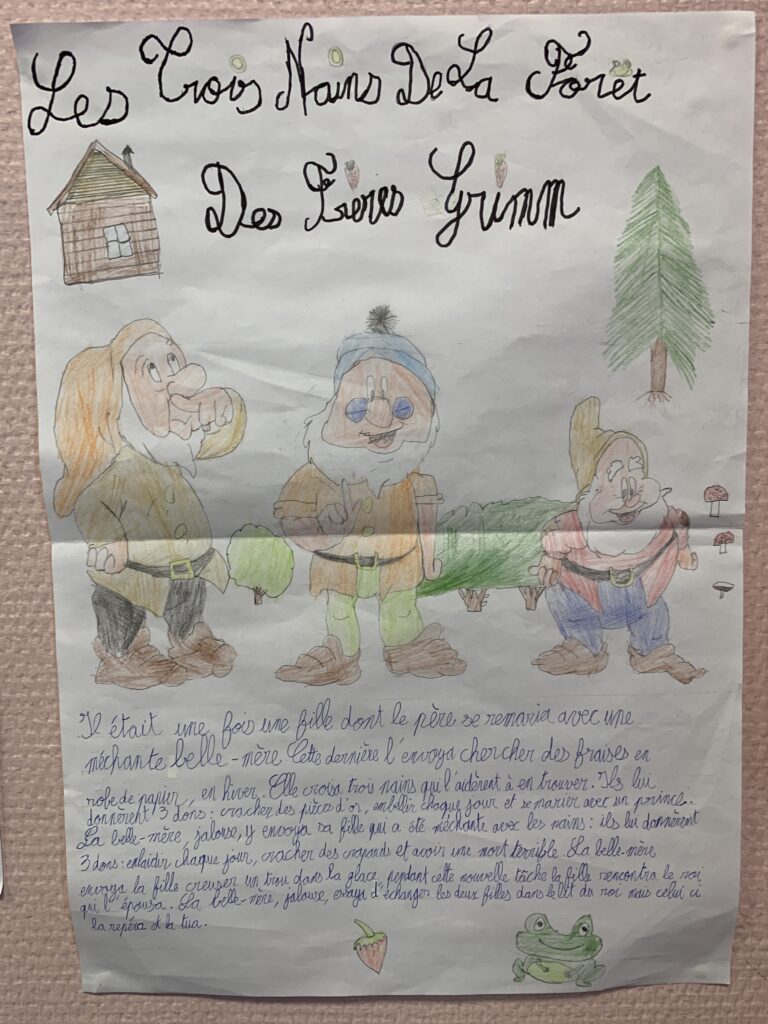 Les Trois Nains De La Forêt
Des Frères Grimm
Il était une fois une fille dont le père se remaria avec une
méchante belle-mère. Cette dernière l'envoya chercher des fraises en
robe de papier, en hiver. Elle croisa trois nains qui l'aidèrent à en trouver. Ils lui
donnèrent 3 dons : cracher des pièces d'or, embellir chaque jour et se marier avec un prince.
La belle-mère, jalouse, y envoya sa fille qui a été méchante avec les nains : ils lui donnèrent
3 dons : enlaidir chaque jour, cracher des crapauds et avoir une mort terrible. La belle-mère
envoya la fille creuser un trou dans la glace, pendant cette nouvelle tâche la fille rencontra le roi
qui l'épousa. La belle-mère, jalouse, essaya d'échanger les deux filles dans le lit du roi mais celui ci
la repéra et la tua.